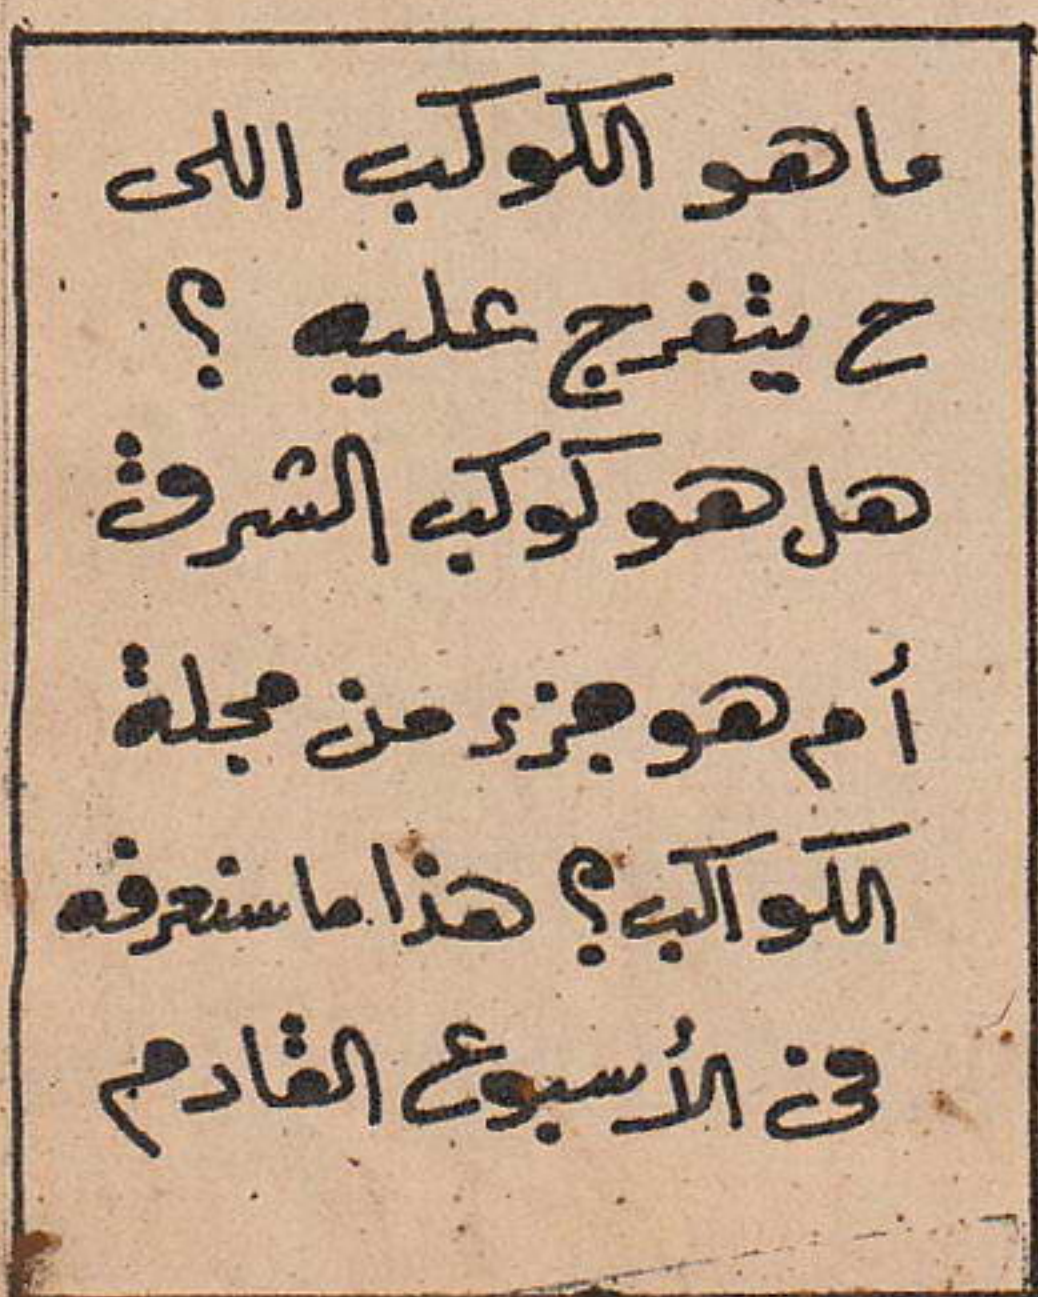 ما هو الكوكب اللى
ح يتفرج عليه ؟
هل هو كوكب الشرق
أم هو جزء من مجلة
الكواكب؟ هذا ما سنعرفه
فى الأسبوع القادم